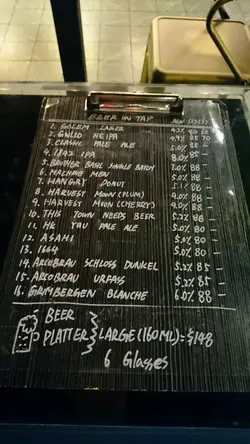 BEER IN TAP ALV (L) (S)
1. GOLEM LAGER 4.2%
2. GWLIO NEIPA 4.9% 85 70
3. CLASSIC PALE ALE 5.0%
4. 1842 IPA 8.0% 85 -
5. BROTHER BASIL SINGLE BATCH 7.0% 88 -
6. MACHINE MEN 5.0% 88 -
7. HANGRY DONUT 5.1% 88 -
8. HARVEST MOON (PLUM) 4.0% 88 -
9. HARVEST MOON (CHERRY) 4.0% 88 -
10. THIS TOWN NEEDS BEER 5.2% 88 -
11. HK YAU PALE ALE 5.0% 80 -
12. ASAHI 5.0% 80 -
13. 1664 5.0% 80 -
14. ARCOBRAU SCHLOSS DUNKEL 5.2% 85 -
15. ARCOBRAU URFASS 5.2% 85 -
16. GRIMBERGEN BLANCHE 6.0% 88 -
BEER
PLATTER LARGE (160ML) = $148
6 Glasses